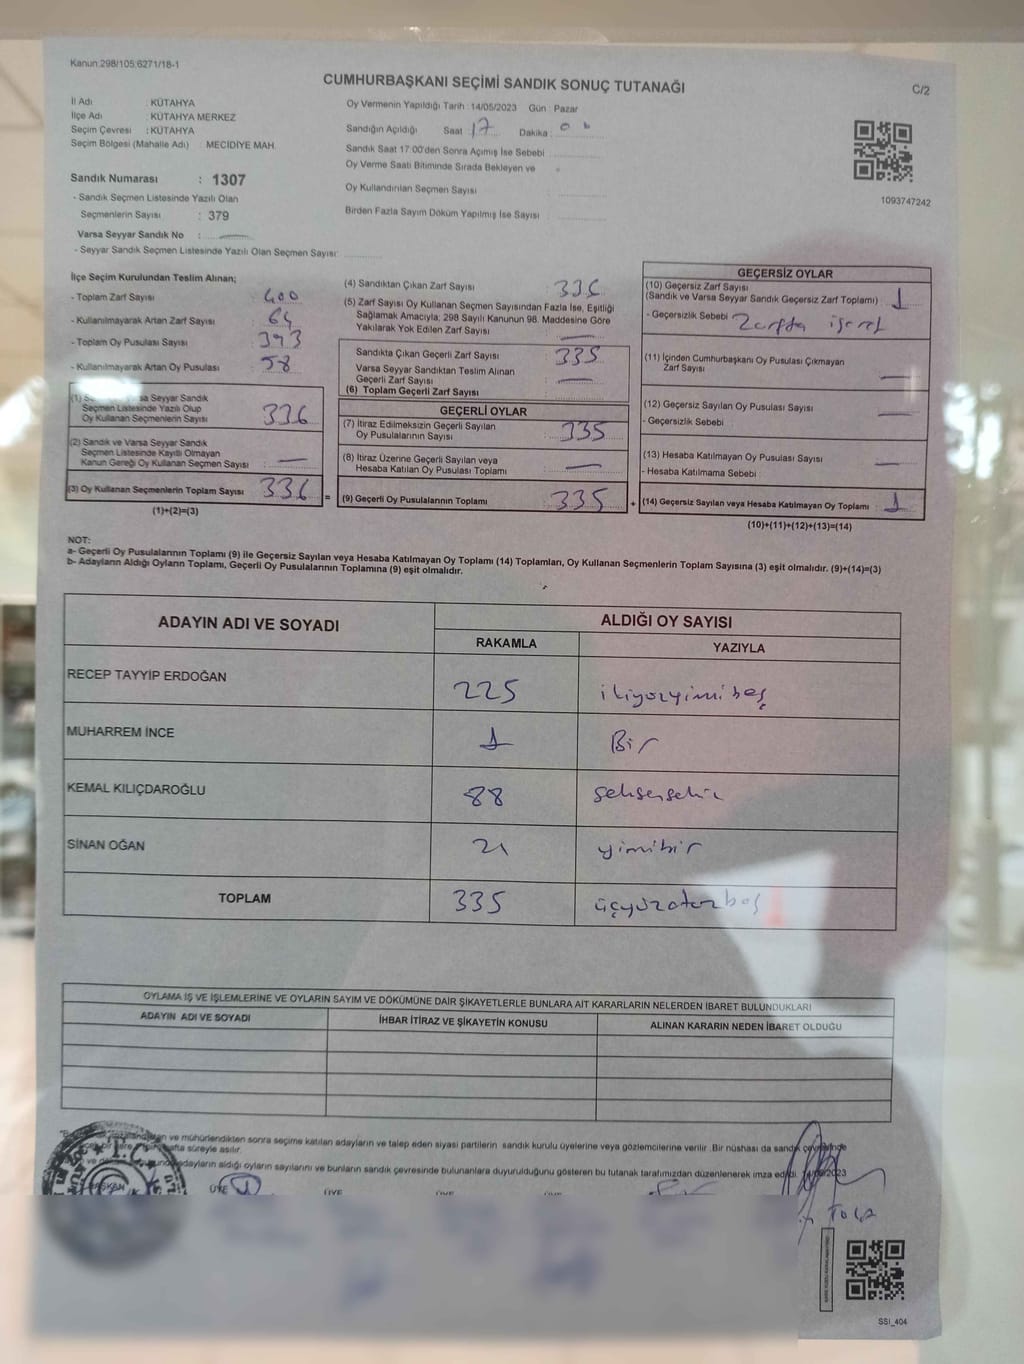 Kanun:298/105;6271/18-1
CUMHURBAŞKANI SEÇİMİ SANDIK SONUÇ TUTANAĞI
C/2
İl Adı : KÜTAHYA
İlçe Adı : KÜTAHYA MERKEZ
Seçim Çevresi : KÜTAHYA
Seçim Bölgesi (Mahalle Adı) : MECİDİYE MAH.
Oy Vermenin Yapıldığı Tarih : 14/05/2023 Gün : Pazar
Sandığın Açıldığı Saat : 17 Dakika :
Sandık Saat 17:00'den Sonra Açımış İse Sebebi
Oy Verme Saati Bitiminde Sırada Bekleyen ve
Oy Kullandırılan Seçmen Sayısı
Birden Fazla Sayım Döküm Yapılmış İse Sayısı
1093747242
Sandık Numarası : 1307
- Sandık Seçmen Listesinde Yazılı Olan
Seçmenlerin Sayısı : 379
Varsa Seyyar Sandık No :
- Seyyar Sandık Seçmen Listesinde Yazılı Olan Seçmen Sayısı:
İlçe Seçim Kurulundan Teslim Alınan;
- Toplam Zarf Sayısı : 400
- Kullanılmayarak Artan Zarf Sayısı : 64
- Toplam Oy Pusulası Sayısı : 393
- Kullanılmayarak Artan Oy Pusulası : 58
(1) Varsa Seyyar Sandık
Seçmen Listesinde Yazılı Olup
Oy Kullanan Seçmenlerin Sayısı 336
(2) Sandık ve Varsa Seyyar Sandık
Seçmen Listesinde Kayıtlı Olmayan
Kanun Gereği Oy Kullanan Seçmen Sayısı : —
(3) Oy Kullanan Seçmenlerin Toplam Sayısı 336
(1)+(2)=(3)
=
(4) Sandıktan Çıkan Zarf Sayısı : 336
(5) Zarf Sayısı Oy Kullanan Seçmen Sayısından Fazla İse, Eşitliği
Sağlamak Amacıyla; 298 Sayılı Kanunun 98. Maddesine Göre
Yakılarak Yok Edilen Zarf Sayısı : —
Sandıkta Çıkan Geçerli Zarf Sayısı : 335
Varsa Seyyar Sandıktan Teslim Alınan
Geçerli Zarf Sayısı : —
(6) Toplam Geçerli Zarf Sayısı :
GEÇERLİ OYLAR
(7) İtiraz Edilmeksizin Geçerli Sayılan
Oy Pusulalarının Sayısı : 335
(8) İtiraz Üzerine Geçerli Sayılan veya
Hesaba Katılan Oy Pusulası Toplamı : —
(9) Geçerli Oy Pusulalarının Toplamı 335
+
GEÇERSİZ OYLAR
(10) Geçersiz Zarf Sayısı
(Sandık ve Varsa Seyyar Sandık Geçersiz Zarf Toplamı) : 1
- Geçersizlik Sebebi : Zarfta işaret
(11) İçinden Cumhurbaşkanı Oy Pusulası Çıkmayan
Zarf Sayısı : —
(12) Geçersiz Sayılan Oy Pusulası Sayısı : —
- Geçersizlik Sebebi :
(13) Hesaba Katılmayan Oy Pusulası Sayısı : —
- Hesaba Katılmama Sebebi :
(14) Geçersiz Sayılan veya Hesaba Katılmayan Oy Toplamı : 1
(10)+(11)+(12)+(13)=(14)
NOT:
a- Geçerli Oy Pusulalarının Toplamı (9) ile Geçersiz Sayılan veya Hesaba Katılmayan Oy Toplamı (14) Toplamları, Oy Kullanan Seçmenlerin Toplam Sayısına (3) eşit olmalıdır. (9)+(14)=(3)
b- Adayların Aldığı Oyların Toplamı, Geçerli Oy Pusulalarının Toplamına (9) eşit olmalıdır.
ADAYIN ADI VE SOYADI ALDIĞI OY SAYISI
RAKAMLA YAZIYLA
RECEP TAYYİP ERDOĞAN 225 ikiyüzyimibeş
MUHARREM İNCE 1 Bir
KEMAL KILIÇDAROĞLU 88 seksensekiz
SİNAN OĞAN 21 yimibir
TOPLAM 335 üçyüzotuzbeş
OYLAMA İŞ VE İŞLEMLERİNE VE OYLARIN SAYIM VE DÖKÜMÜNE DAİR ŞİKAYETLERLE BUNLARA AİT KARARLARIN NELERDEN İBARET BULUNDUKLARI
ADAYIN ADI VE SOYADI İHBAR İTİRAZ VE ŞİKAYETİN KONUSU ALINAN KARARIN NEDEN İBARET OLDUĞU
ve mühürlendikten sonra seçime katılan adayların ve talep eden siyasi partilerin sandık kurulu üyelerine veya gözlemcilerine verilir. Bir nüshası da sandık çevresinde
hafta süreyle asılır.
adayların aldığı oyların sayılarını ve bunların sandık çevresinde bulunanlara duyurulduğunu gösteren bu tutanak tarafımızdan düzenlenerek imza edildi.
T.C.
BAŞKAN ÜYE ÜYE ÜYE
SSI_404